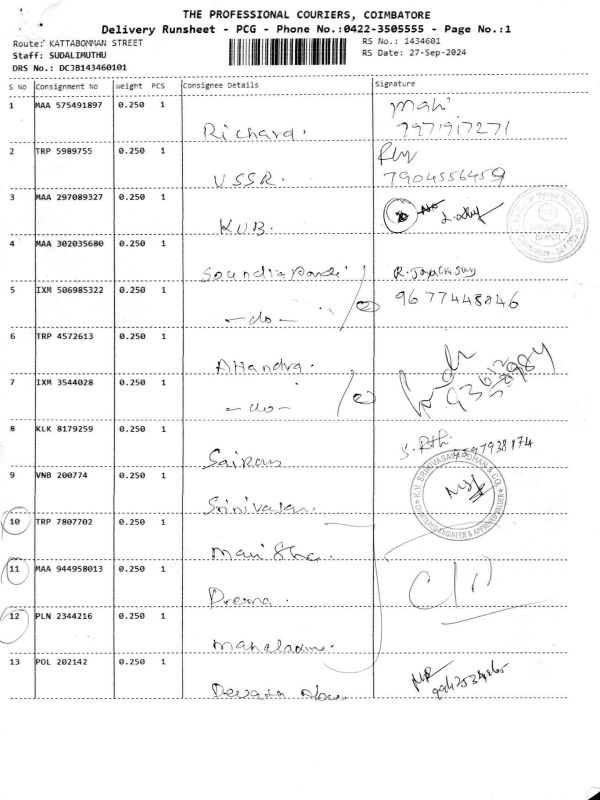 THE PROFESSIONAL COURIERS, COIMBATORE
Delivery Runsheet - PCG - Phone No.:0422-3505555 - Page No.:1
Route: KATTABOMMAN STREET
RS No.: 1434601
Staff: SUDALIMUTHU
RS Date: 27-Sep-2024
DRS No.: DCJB143460101
S No Consignment No Weight PCS Consignee Details Signature
1 MAA 575491897 0.250 1
Richard. 7971917271
2 TRP 5989755 0.250 1
VSSR. 7904556459
3 MAA 297089327 0.250 1
KUB.
4 MAA 302035680 0.250 1
5 IXM 506985322 0.250 1 9677448846
-do-
6 TRP 4572613 0.250 1
7 IXM 3544028 0.250 1
-do-
8 KLK 8179259 0.250 1
Sairam
9 VNB 200774 0.250 1 K.V. SRINIVASAVARDHAN & CO.
Srinivasan. CHARTERED ENGINEER & APPROVED VALUER
10 TRP 7807702 0.250 1
11 MAA 944958013 0.250 1
Prerna.
12 PLN 2344216 0.250 1
13 POL 202142 0.250 1